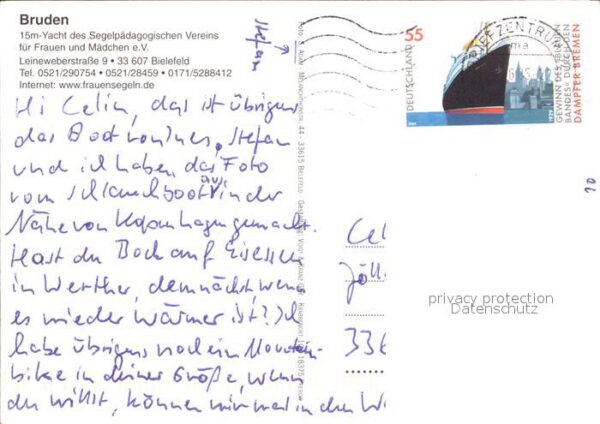 Bruden
15m-Yacht des Segelpädagogischen Vereins
für Frauen und Mädchen e.V.
Leineweberstraße 9 • 33 607 Bielefeld
Tel. 0521/290754 • 0521/28459 • 0171/5288412
Internet: www.frauensegeln.de
Stefan
Hi Celia, das ist übrigens
das Boot von Ines, Stefan
und ich haben das Foto
vom Schlauchboot aus in der
Nähe von Kopenhagen gemacht.
Hast du Bock auf Eisessen
in Werther, demnächst, wenn
es wieder wärmer ist? Ich
habe übrigens noch ein Mountain-
bike in deiner Größe, wenn
du willst, können wir mal in den W
55
DEUTSCHLAND
BRIEFZENTRUM
GEWINN DES "BLAUEN
BANDES" DURCH DEN
DAMPFER BREMEN
Cel
Jöll
336
privacy protection
Datenschutz
10